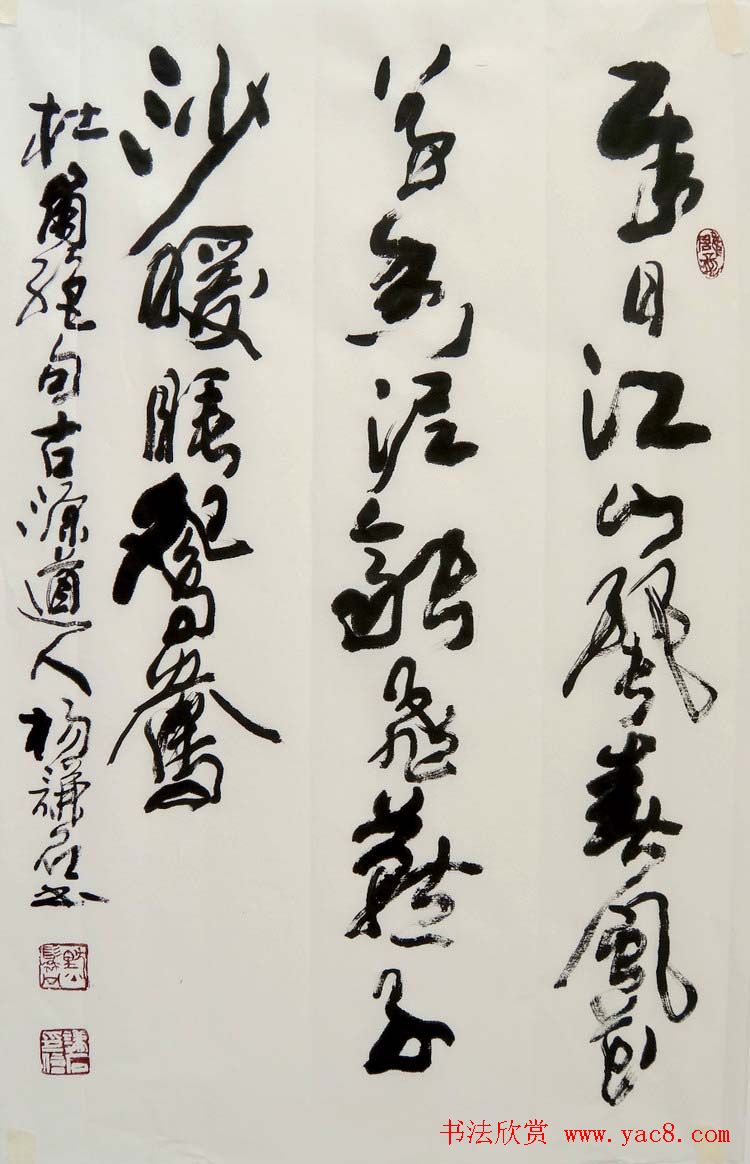 遲日江山麗春風花
草香泥融飛燕子
沙暖睡鴛鴦
杜甫絕句古道人楊謙書
书法欣赏 www.yac8.com